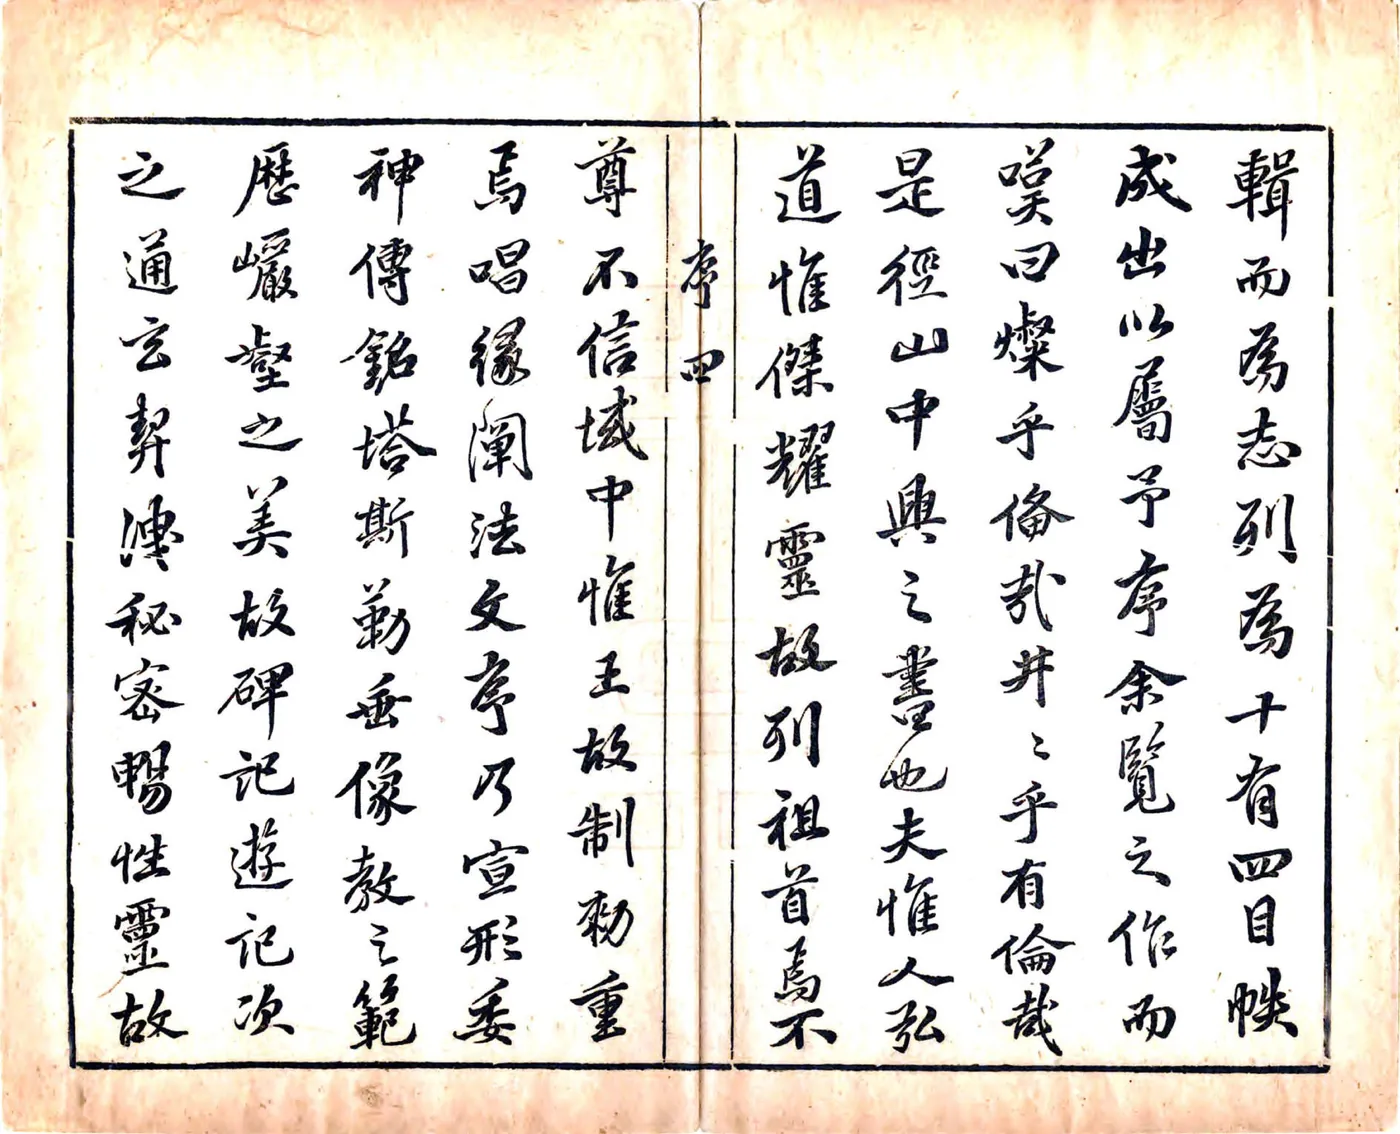 輯而為志列為十有四目帙
成出以屬予序余覽之作而
嘆曰燦乎備哉井〻乎有倫哉
是徑山中興之書也夫惟人弘
道惟傑耀靈故列祖首焉不
序四
尊不信域中惟王故制勅重
焉唱緣闡法文序乃宣形委
神傳銘塔斯勒垂像教之範
歷巖壑之美故碑記遊記次
之通玄契秘密暢性靈故